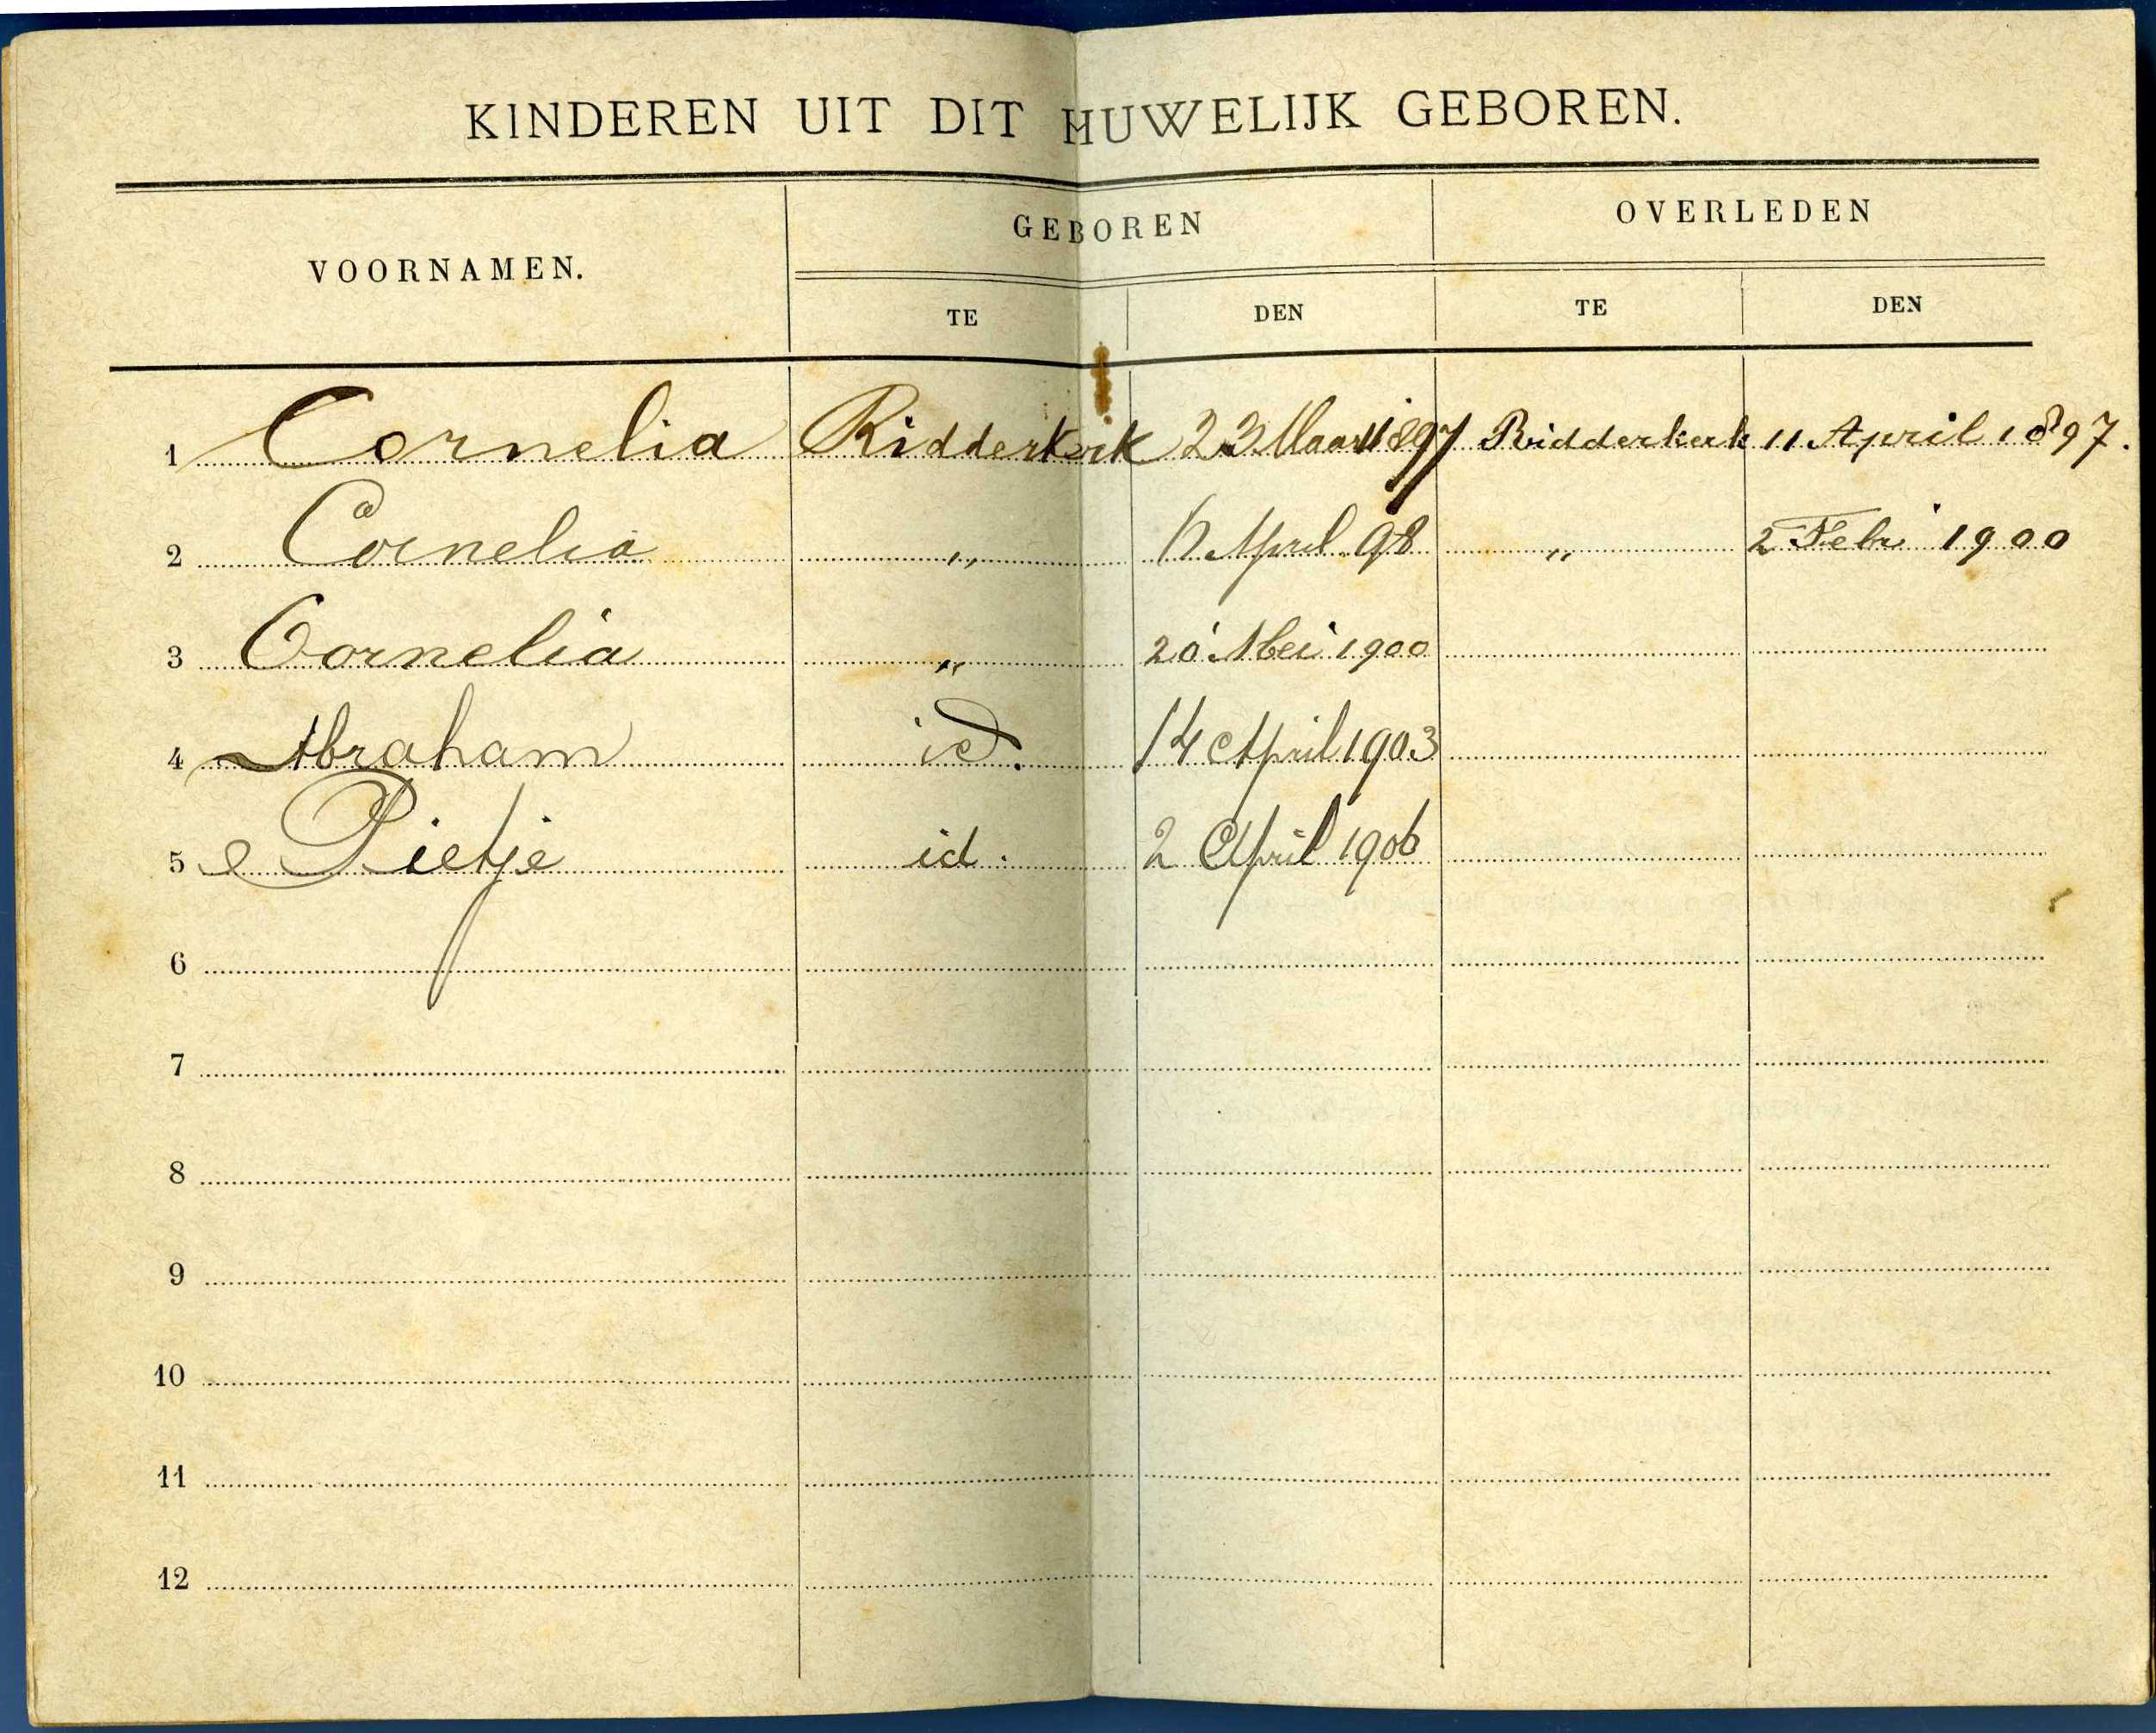 KINDEREN UIT DIT HUWELIJK GEBOREN.
VOORNAMEN. GEBOREN OVERLEDEN
TE DEN TE DEN
1 Cornelia Ridderkerk 23 Maart 1897 Ridderkerk 11 April 1897.
2 Cornelia " 6 April 98 " 2 Febr 1900
3 Cornelia " 20 Mei 1900
4 Abraham id. 14 April 1903
5 Pietje id. 2 April 1906
6
7
8
9
10
11
12